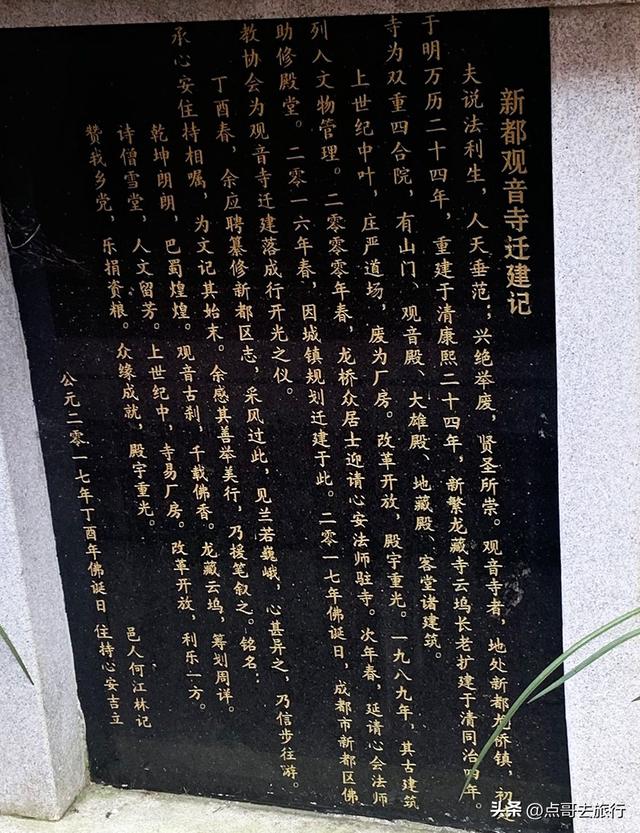 新都观音寺迁建记
夫说法利生，人天垂范；兴绝举废，贤圣所崇。观音寺者，地处新都龙桥镇，初
于明万历二十四年，重建于清康熙二十四年，新繁龙藏寺云坞长老扩建于清同治四年。
寺为双重四合院，有山门、观音殿、大雄殿、地藏殿、客堂诸建筑。
上世纪中叶，庄严道场，废为厂房。改革开放，殿宇重光。一九八九年，其古建筑
列入文物管理。二零零零年春，龙桥众居士迎请心安法师驻寺。次年春，延请心会法师
助修殿堂。二零一六年春，因城镇规划迁建于此。二零一七年佛诞日，成都市新都区佛
教协会为观音寺迁建落成行开光之仪。
丁酉春，余应聘纂修新都区志，采风过此，见兰若巍峨，心甚异之，乃信步往游。
承心安住持相嘱，为文记其始末。余感其善举美行，乃援笔叙之。铭名：
乾坤朗朗，巴蜀煌煌。观音古刹，千载佛香。龙藏云坞，筹划周详。
诗僧雪堂，人文留芳。上世纪中，寺易厂房。改革开放，利乐一方。
赞我乡党，乐捐资粮。众缘成就，殿宇重光。
邑人何江林记
公元二零一七年丁酉年佛诞日 住持心安吉立
头条 @点哥去旅行